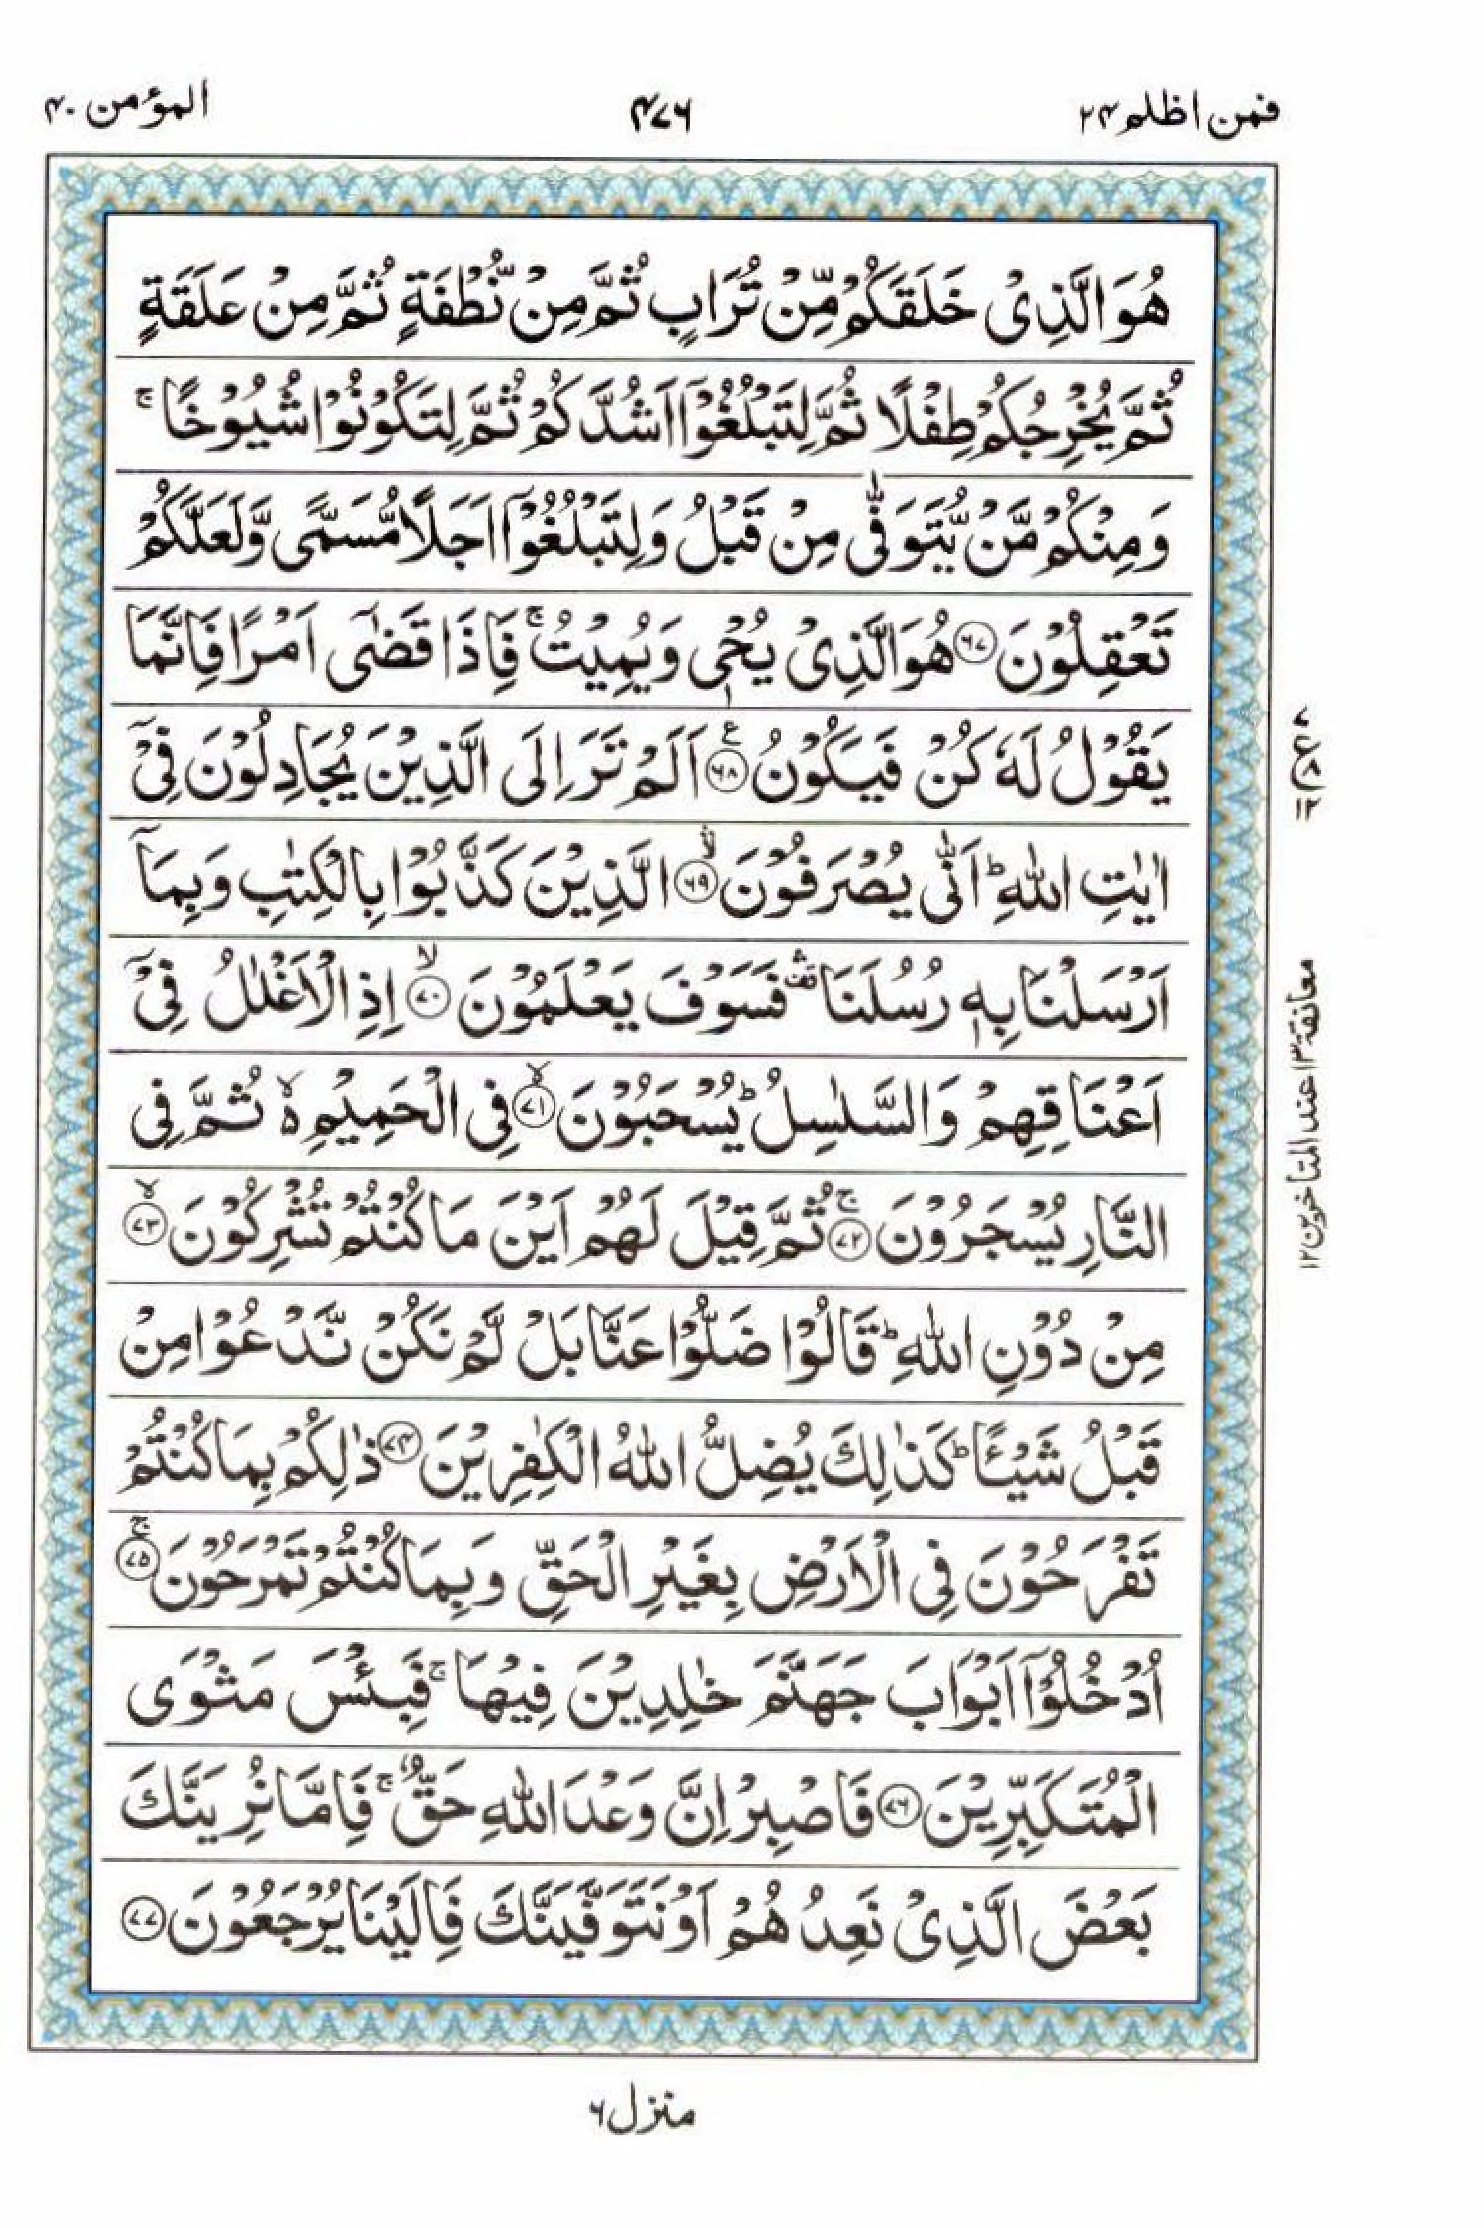 فمن اظلم ۲۴ ۴۷۶ المؤمن ۴۰
هُوَ الَّذِیْ خَلَقَكُمْ مِّنْ تُرَابٍ ثُمَّ مِنْ نُّطْفَةٍ ثُمَّ مِنْ عَلَقَةٍ
ثُمَّ یُخْرِجُكُمْ طِفْلًا ثُمَّ لِتَبْلُغُوْۤا اَشُدَّكُمْ ثُمَّ لِتَكُوْنُوْا شُیُوْخًا ۚ
وَمِنْكُمْ مَّنْ یُّتَوَفّٰی مِنْ قَبْلُ وَلِتَبْلُغُوْۤا اَجَلًا مُّسَمًّی وَّلَعَلَّكُمْ
تَعْقِلُوْنَ ﴿۶۷﴾ هُوَ الَّذِیْ یُحْیٖ وَیُمِیْتُ ۚ فَاِذَا قَضٰۤی اَمْرًا فَاِنَّمَا
یَقُوْلُ لَهٗ كُنْ فَیَكُوْنُ ﴿۶۸﴾ ع اَلَمْ تَرَ اِلَی الَّذِیْنَ یُجَادِلُوْنَ فِیْۤ
اٰیٰتِ اللّٰهِ ؕ اَنّٰی یُصْرَفُوْنَ ﴿۶۹﴾ الَّذِیْنَ كَذَّبُوْا بِالْكِتٰبِ وَبِمَاۤ
اَرْسَلْنَا بِهٖ رُسُلَنَا ۛ فَسَوْفَ یَعْلَمُوْنَ ﴿۷۰﴾ۙ اِذِ الْاَغْلٰلُ فِیْۤ
اَعْنَاقِهِمْ وَالسَّلٰسِلُ ؕ یُسْحَبُوْنَ ﴿۷۱﴾ۙ فِی الْحَمِیْمِ ۙ ثُمَّ فِی
النَّارِ یُسْجَرُوْنَ ﴿۷۲﴾ۚ ثُمَّ قِیْلَ لَهُمْ اَیْنَ مَا كُنْتُمْ تُشْرِكُوْنَ ﴿۷۳﴾ۙ
مِنْ دُوْنِ اللّٰهِ ؕ قَالُوْا ضَلُّوْا عَنَّا بَلْ لَّمْ نَكُنْ نَّدْعُوْا مِنْ
قَبْلُ شَیْـًٔا ؕ كَذٰلِكَ یُضِلُّ اللّٰهُ الْكٰفِرِیْنَ ﴿۷۴﴾ ذٰلِكُمْ بِمَا كُنْتُمْ
تَفْرَحُوْنَ فِی الْاَرْضِ بِغَیْرِ الْحَقِّ وَبِمَا كُنْتُمْ تَمْرَحُوْنَ ﴿۷۵﴾ۚ
اُدْخُلُوْۤا اَبْوَابَ جَهَنَّمَ خٰلِدِیْنَ فِیْهَا ۚ فَبِئْسَ مَثْوَی
الْمُتَكَبِّرِیْنَ ﴿۷۶﴾ فَاصْبِرْ اِنَّ وَعْدَ اللّٰهِ حَقٌّ ۚ فَاِمَّا نُرِیَنَّكَ
بَعْضَ الَّذِیْ نَعِدُهُمْ اَوْ نَتَوَفَّیَنَّكَ فَاِلَیْنَا یُرْجَعُوْنَ ﴿۷۷﴾
۷ ع ۸ ۱۲
معانقة ۱۳ عند المتاخرین ۱۲
منزل ۶